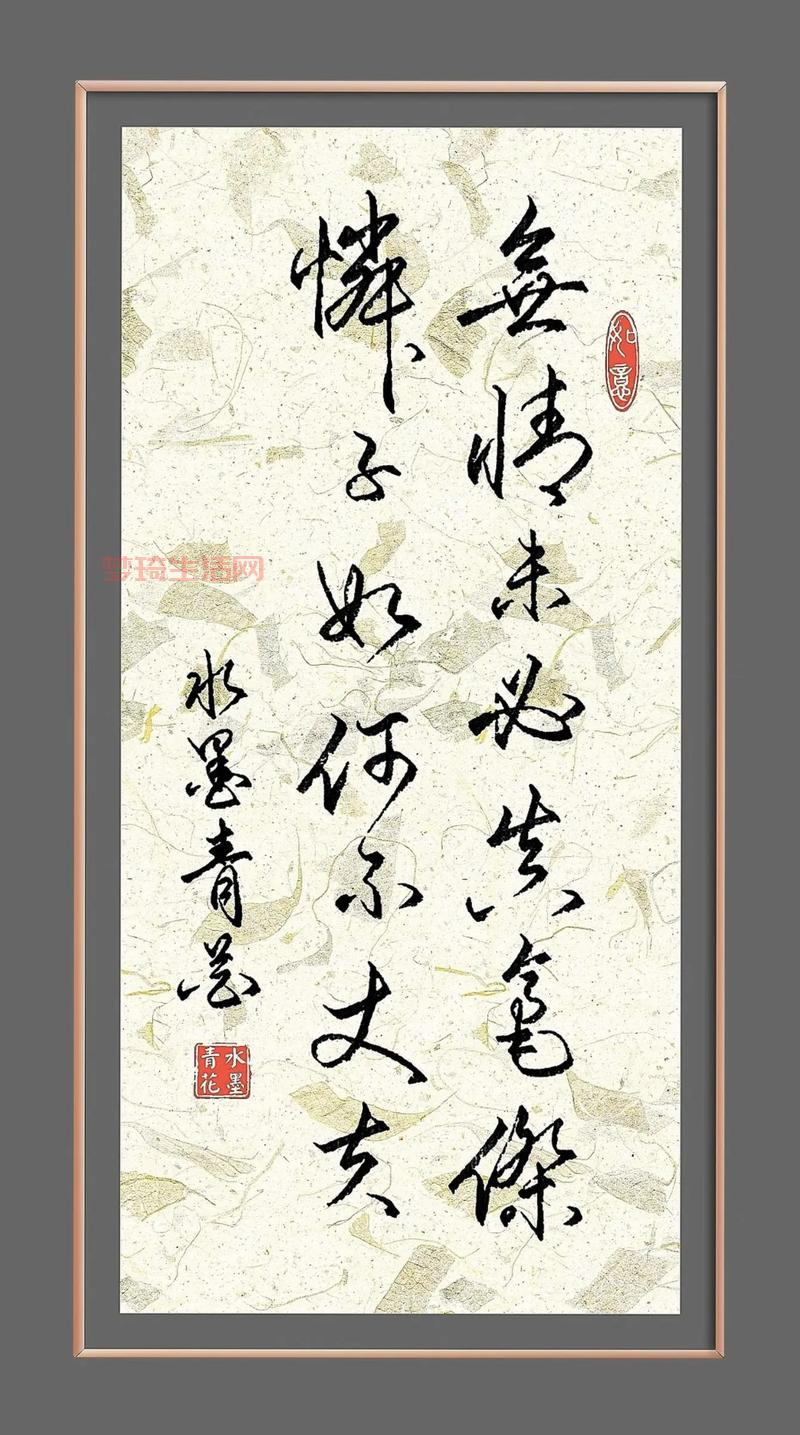 如意
無情未必真豪傑
憐子如何不丈夫
水墨青花
水墨青花
梦琦生活网